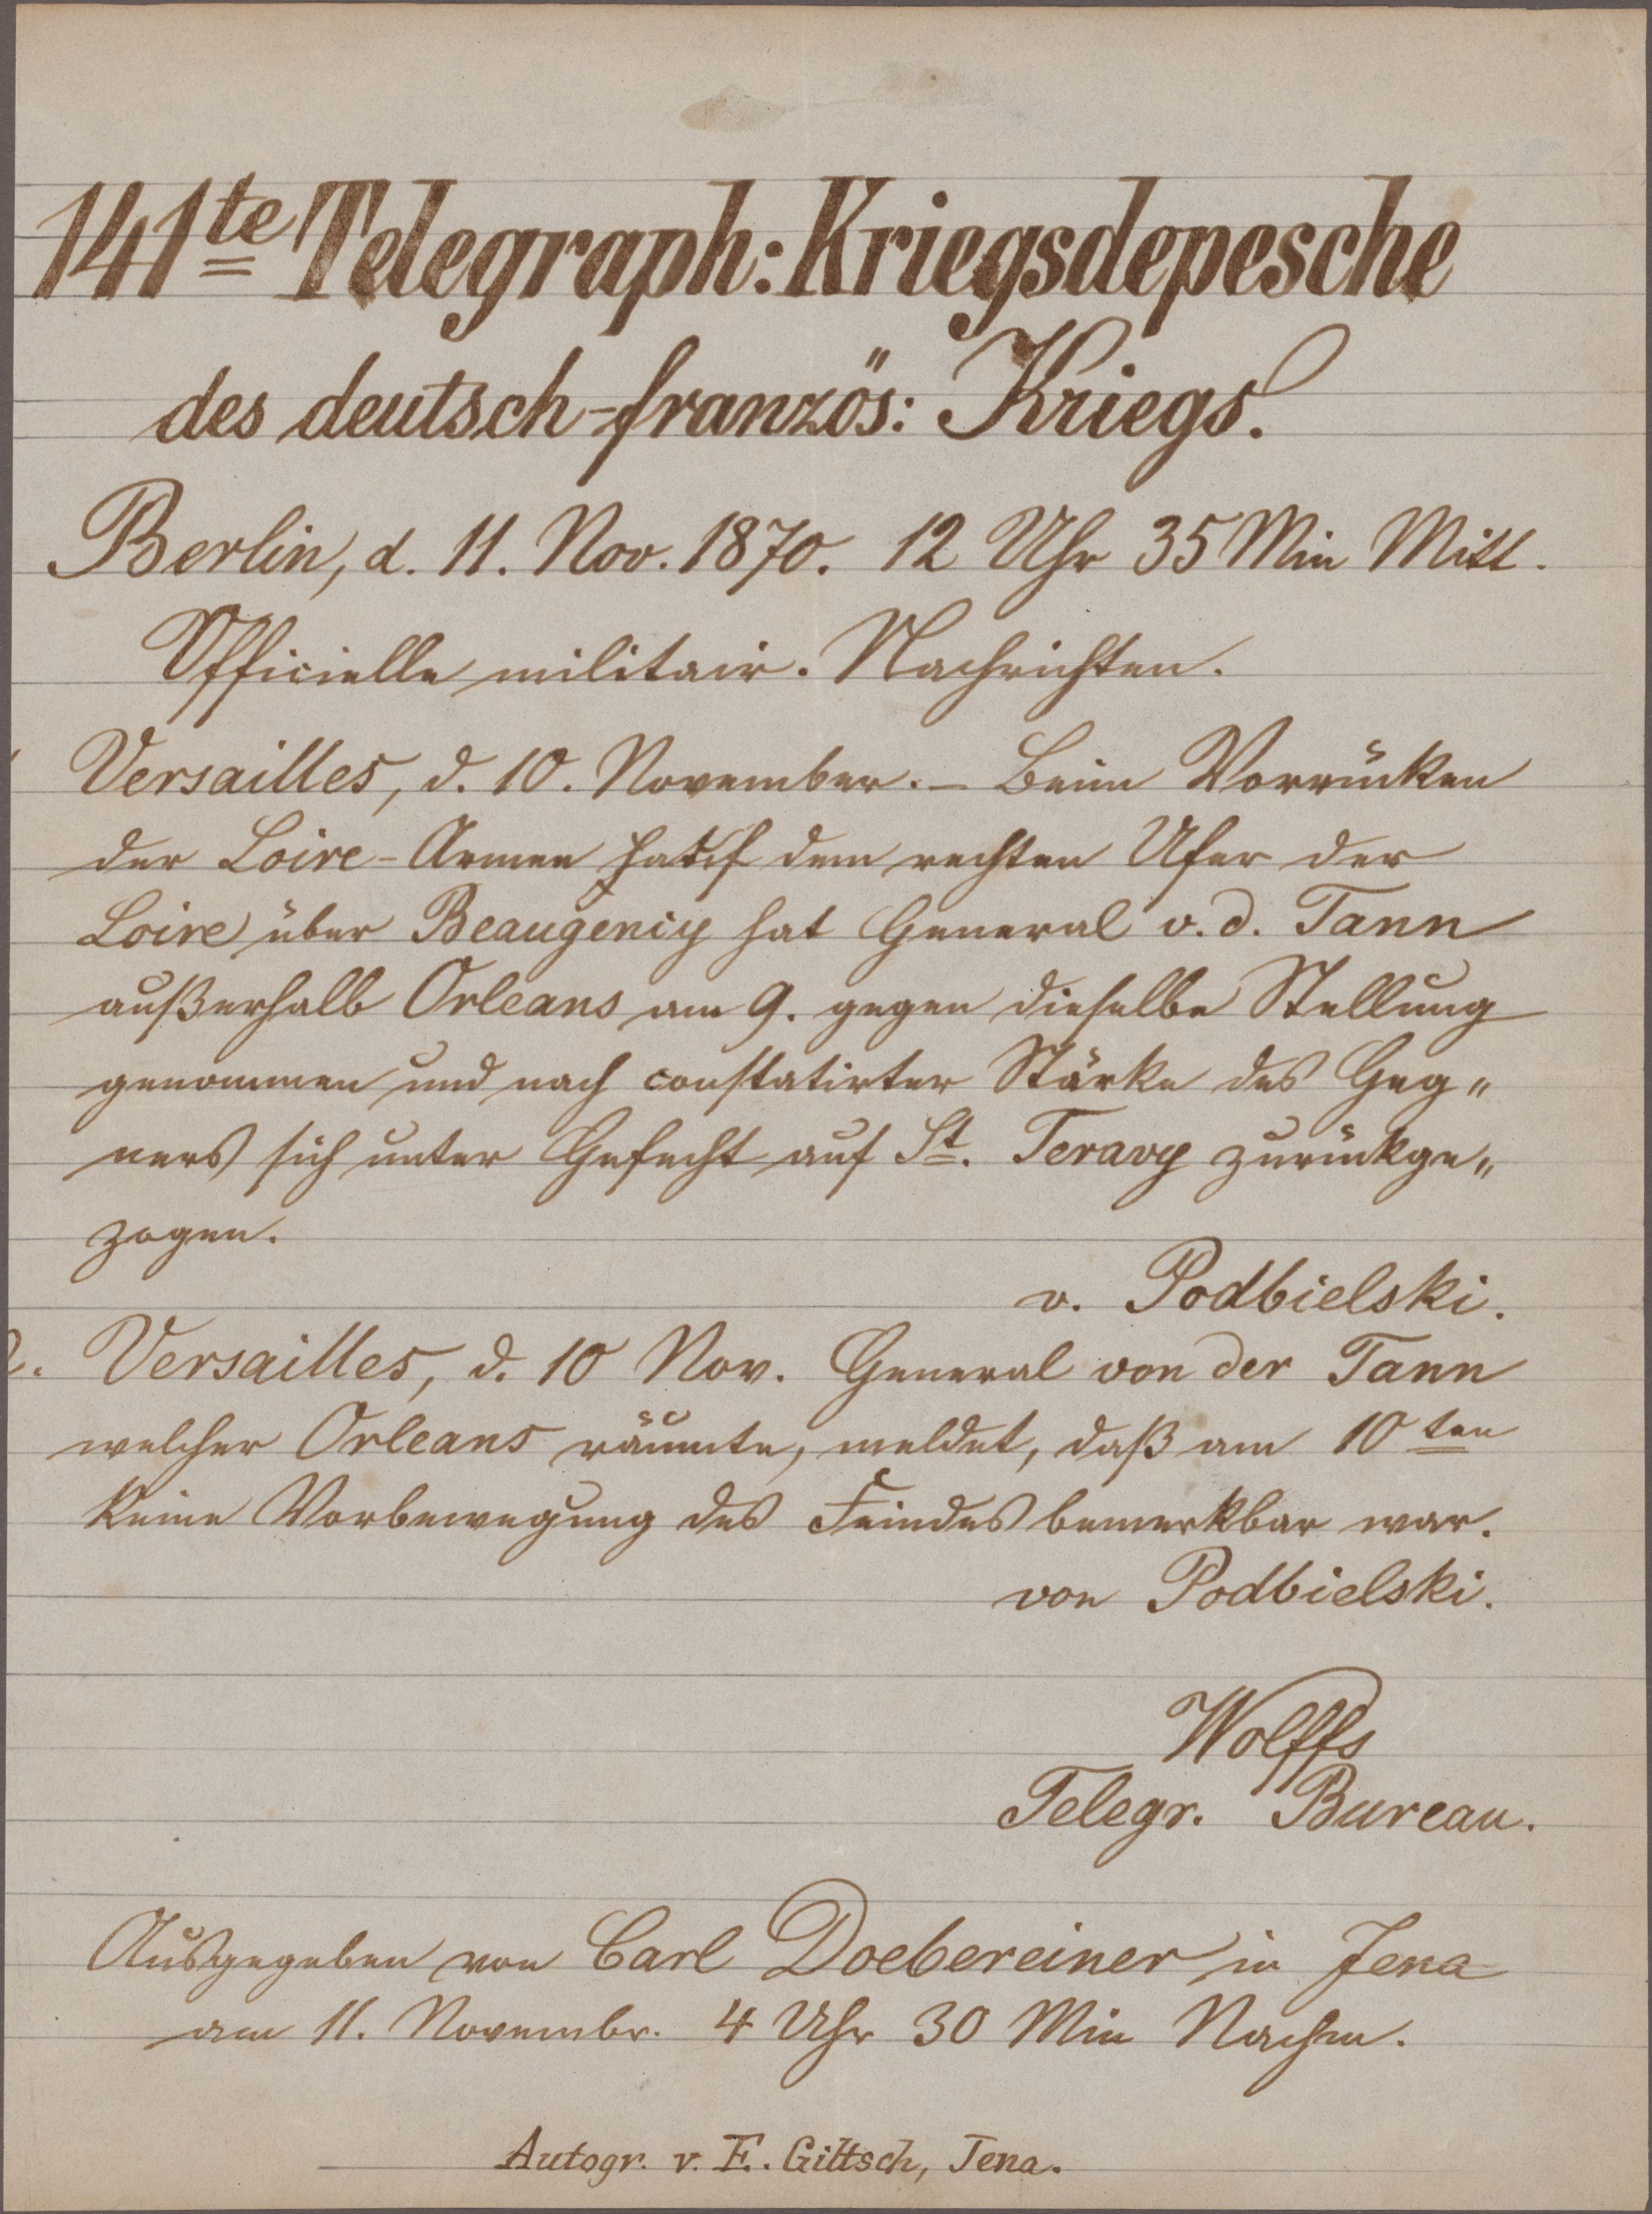 141te Telegraph: Kriegsdepesche
des deutsch-französ: Kriegs.
Berlin, d. 11. Nov. 1870. 12 Uhr 35 Min Mitt.
Officielle militair. Nachrichten.
Versailles, d. 10. November. – Beim Vorrücken
der Loire-Armee dem rechten Ufer der
Loire über Beaugeniy hat General v. d. Tann
außerhalb Orleans am 9. gegen dieselbe Stellung
genommen und nach constatirter Stärke des Geg„
ners sich unter Gefecht auf St. Teravy zurückge„
zogen.
v. Podbielski.
2. Versailles, d. 10 Nov. General von der Tann
welcher Orleans räumte, meldet, daß am 10ten
keine Vorbewegung des Feindes bemerkbar war.
von Podbielski.
Wolffs
Telegr. Bureau.
Ausgegeben von Carl Doebereiner in Jena
am 11. Novembr. 4 Uhr 30 Min Nachm.
Autogr. v. E. Giltsch, Jena.